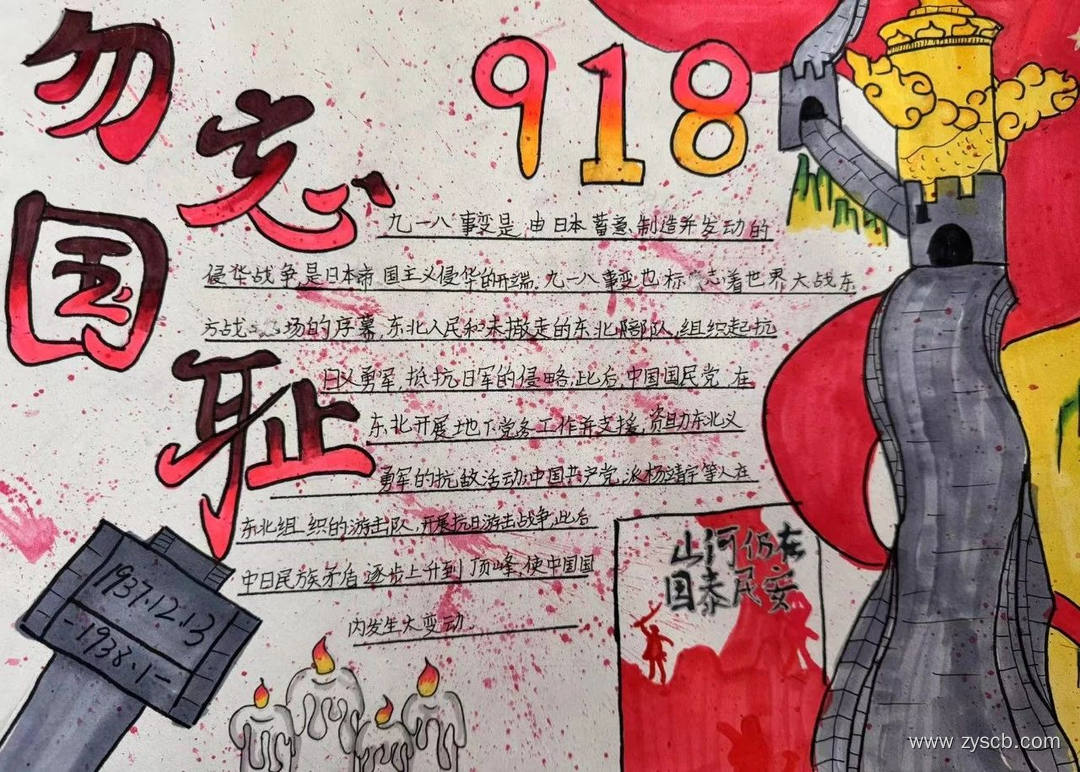 勿忘国耻
918
九一八事变是由日本蓄意制造并发动的
侵华战争,是日本帝国主义侵华的开端.九一八事变也标志着世界大战东
方战场的序幕,东北人民和未撤走的东北部队,组织起抗
日义勇军,抵抗日军的侵略,此后,中国国民党,在
东北开展地下党务工作并支援,资助东北义
勇军的抗敌活动,中国共产党,派杨靖宇等人在
东北组织的游击队,开展抗日游击战争,此后
中日民族矛盾逐步上升到顶峰,使中国国
内发生大变动.
山河仍在
国泰民安
1937.12.13
-1938.1-
www.zyscb.com